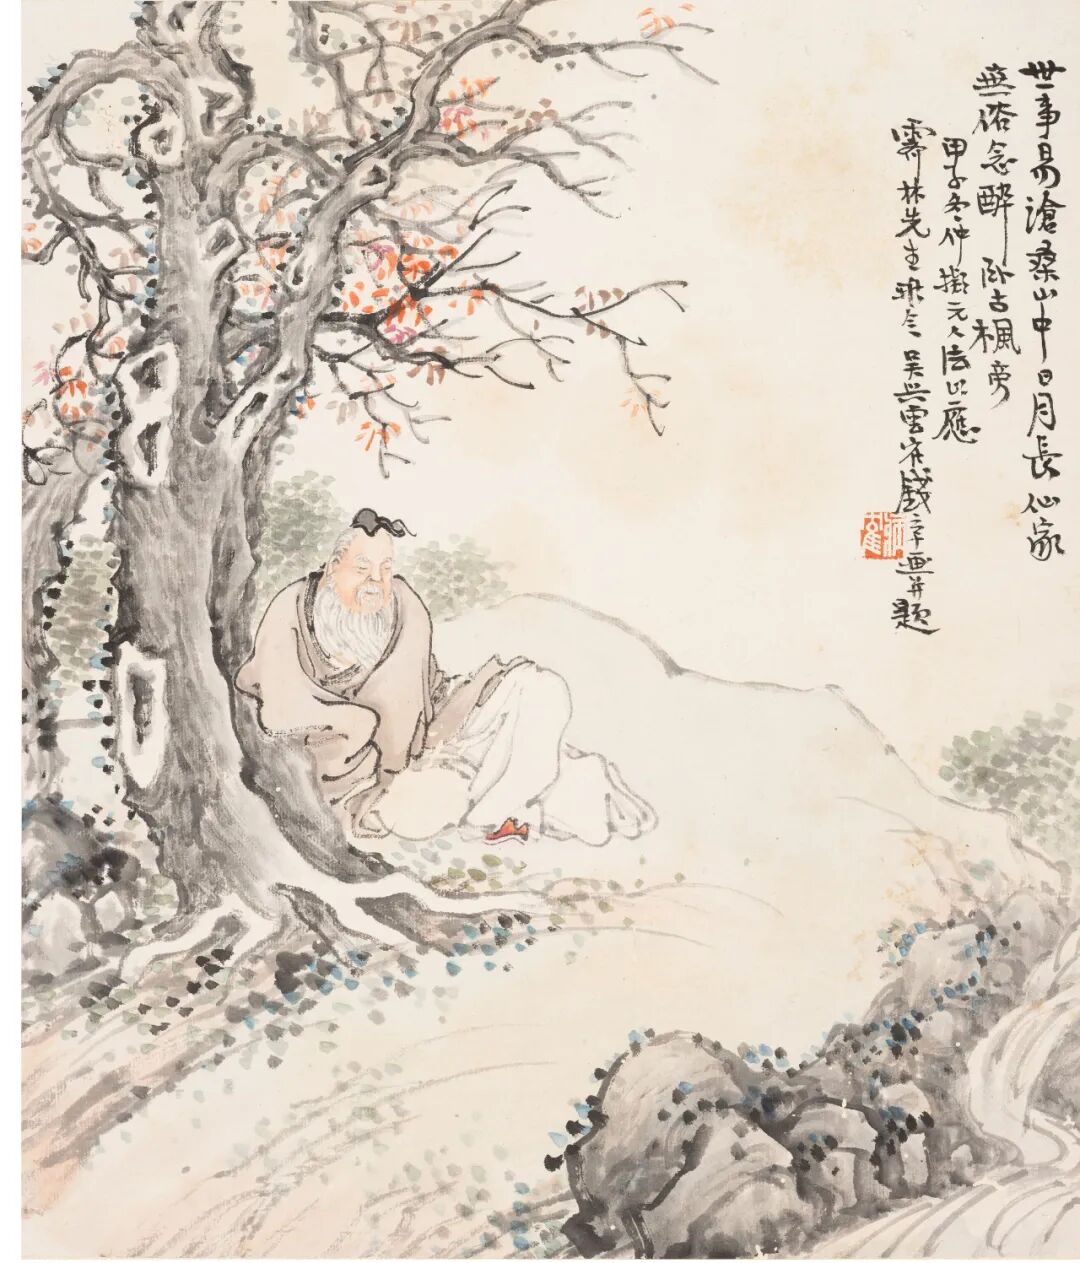 世事易滄桑山中日月長仙家
無俗念醉臥古楓旁
甲子冬仲擬元人法以應
霽林先生雅令 吳興雲錢畫并題